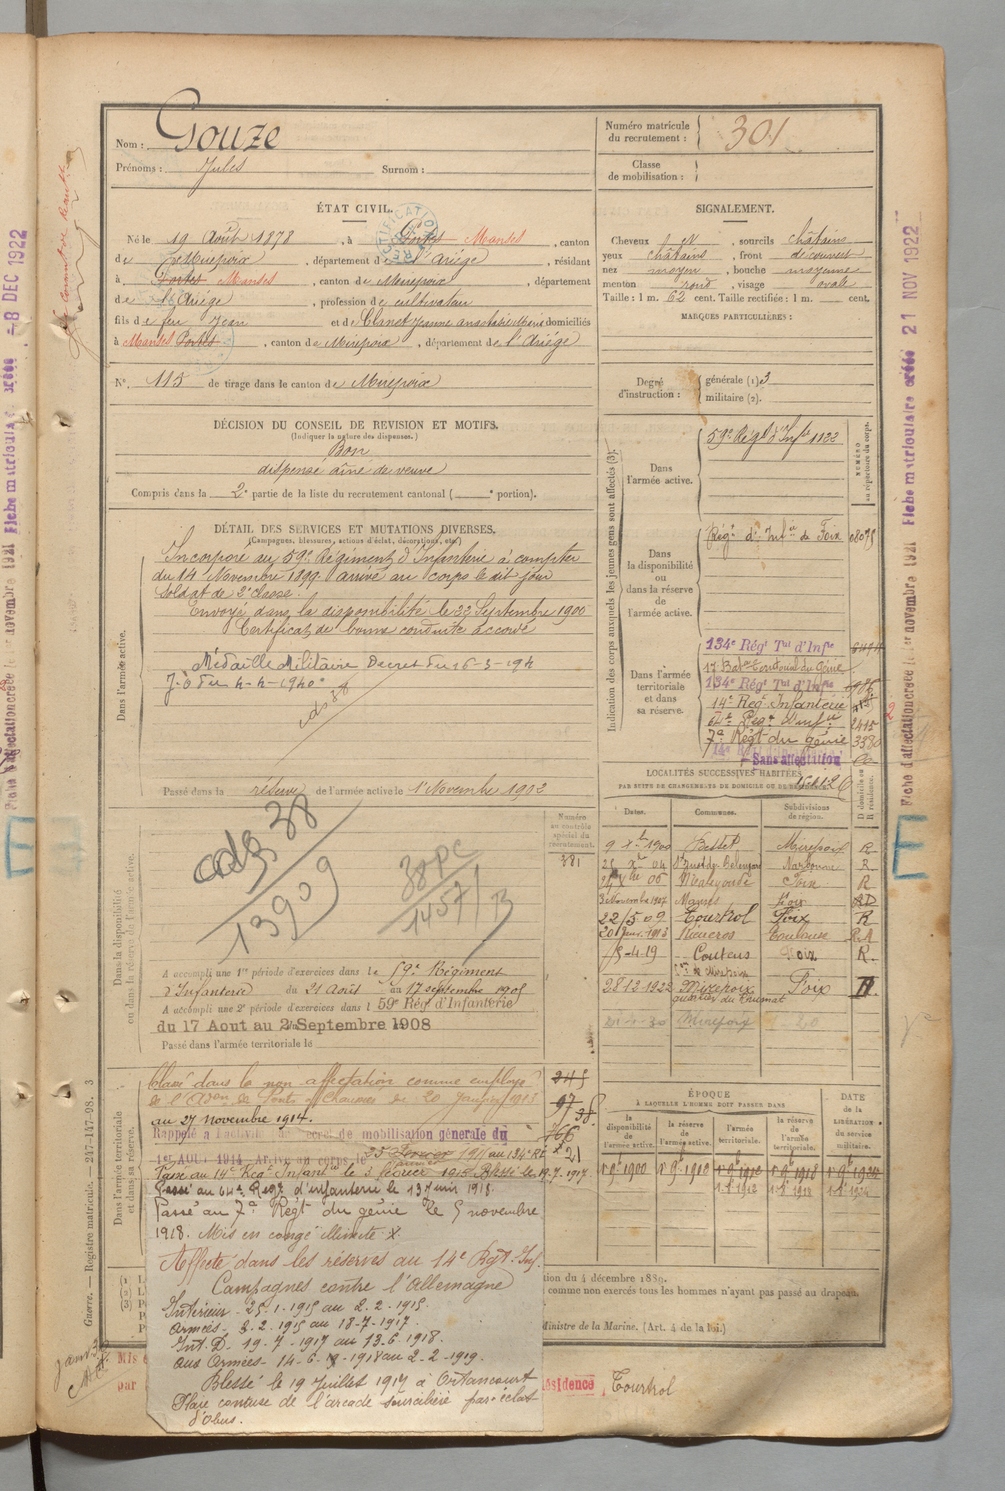 Nom : Gouze
Prénoms : Jules Surnom :
Numéro matricule du recrutement : 301
Classe de mobilisation :
ÉTAT CIVIL.
Né le 19 Août 1878, à Portes Manses, canton
de Mirepoix, département de l'Ariège, résidant
à Portes Manses, canton de Mirepoix, département
de l'Ariège, profession de cultivateur
fils de feu Jean et de Clanet Jeanne domiciliés
à Manses Portes, canton de Mirepoix, département de l'Ariége
N° 115 de tirage dans le canton de Mirepoix
SIGNALEMENT.
Cheveux, sourcils châtains
yeux châtains, front découvert
nez moyen, bouche moyenne
menton rond, visage ovale
Taille : 1 m. 62 cent. Taille rectifiée : 1 m. cent.
MARQUES PARTICULIÈRES :
Degré d'instruction : générale (1) 3
militaire (2).
DÉCISION DU CONSEIL DE REVISION ET MOTIFS.
(Indiquer la nature des dispenses.)
Bon
dispensé aîné de veuve
Compris dans la 2e partie de la liste du recrutement cantonal ( e portion).
DÉTAIL DES SERVICES ET MUTATIONS DIVERSES.
(Campagnes, blessures, actions d'éclat, décorations, etc.)
Dans l'armée active.
Incorporé au 59e Régiment d'Infanterie à compter
du 14 Novembre 1899 arrivé au corps le dit jour
soldat de 2e classe.
Envoyé dans la disponibilité le 22 Septembre 1900
Certificat de bonne conduite accordé
Médaille Militaire Decret du 16-3-194
J.O du 4-4-1940
Passé dans la réserve de l'armée active le 1 Novembre 1902
Indication des corps auxquels les jeunes gens sont affectés (3).
NUMÉRO au répertoire du corps.
Dans l'armée active.
59e Régt d'Infie 1122
Dans la disponibilité ou dans la réserve de l'armée active.
Régt d'Infie de Foix
Dans l'armée territoriale et dans sa réserve.
134e Régt Tal d'Infie
17 Baton Territorial du Génie
134e Régt Tal d'Infie
14e Regt Infanterie
64e Regt d'Infie 2415
7e Régt du génie 3380
Sans affectation
LOCALITÉS SUCCESSIVES HABITÉES
PAR SUITE DE CHANGEMENTS DE DOMICILE OU DE RÉSIDENCE.
Dates. Communes. Subdivisions de région. D domicile ou R résidence.
9 Xbre 1900 Besset Mirepoix R
Narbonne R
Foix R
3 Novembre 1907 Manses Foix RD
22/5 09 Tourtrol Foix R
20 Janv. 1913 Rieucros Toulouse R
5-4-19 Coutens Foix R.
28-12-1922 Mirepoix Foix
Mirepoix
Dans la disponibilité ou dans la réserve de l'armée active.
Numéro au contrôle spécial du recrutement.
381
cdg 38
13909
38 pc
1457/13
A accompli une 1re période d'exercices dans le 59e Régiment
d'Infanterie du 21 Août au 17 septembre 1905
A accompli une 2e période d'exercices dans l 59e Rég. d'Infanterie
du 17 Aout au 2 Septembre 1908
Passé dans l'armée territoriale le
Dans l'armée territoriale et dans sa réserve.
Classé dans la non affectation comme employé
de l'Adon de Ponts et Chaussées du 20 Janvier 1913
au 27 novembre 1914.
Rappelé à l'activité de mobilisation générale du
1er AOUT 1914 Arrivé au corps le 25 Janvier 1915 au 134e RI
Passé au 14e Regt Infantie le 3 fevrier 1915 Blessé le 19.7.1917
Passé au 64e Regt d'infanterie le 13 juin 1918.
Passé au 7e Régt du génie le 5 novembre
1918. Mis en congé illimité X.
Affecté dans les réserves au 14e Rgt. Inf.
Campagnes contre l'Allemagne
Intérieur - 25-1-1915 au 2-2-1915.
Armées - 3-2-1915 au 18-7-1917.
Int. D. 19-7-1917 au 13-6-1918.
aux Armées - 14-6-1918 au 2-2-1919.
Blessé le 19 Juillet 1917 à
Plaie contuse de l'arcade sourcilière par éclat
d'obus.
ÉPOQUE
À LAQUELLE L'HOMME DOIT PASSER DANS
la disponibilité de l'armée active. la réserve de l'armée active. l'armée territoriale. la réserve de l'armée territoriale. DATE de la LIBÉRATION du service militaire.
1er 9bre 1900
tion du 4 décembre 1889.
comme non exercés tous les hommes n'ayant pas passé au drapeau.
Ministre de la Marine. (Art. 4 de la loi.)
ésidence Tourtrol
Guerre. — Registre matricule. — 247-147-98. 3
-8 DEC 1922
Fiche matriculaire créée 21 NOV 1922
Fiche d'affectation créée le 1er novembre 1921
F